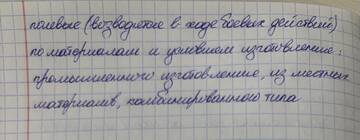 полевые (возводятое в ходе боевых действий)
по материалам и условием изготовление:
промышленного изготовления, из местных
материалов, комбинированного типа